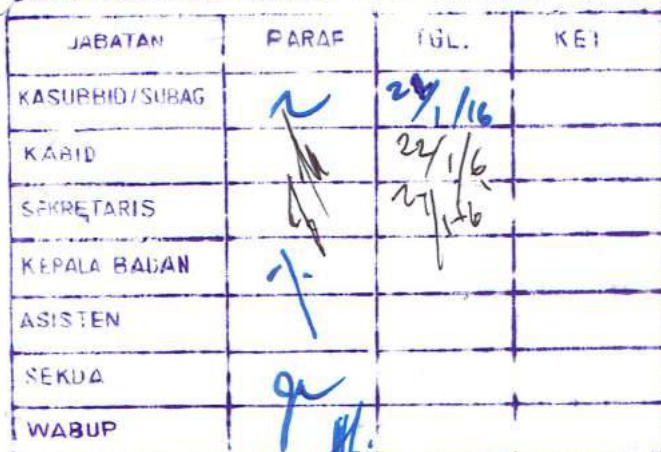 JABATAN PARAF TGL. KET
KASUBBID/SUBAG /1/16
KABID 22/1/6
SEKRETARIS
KEPALA BADAN
ASISTEN
SEKDA
WABUP